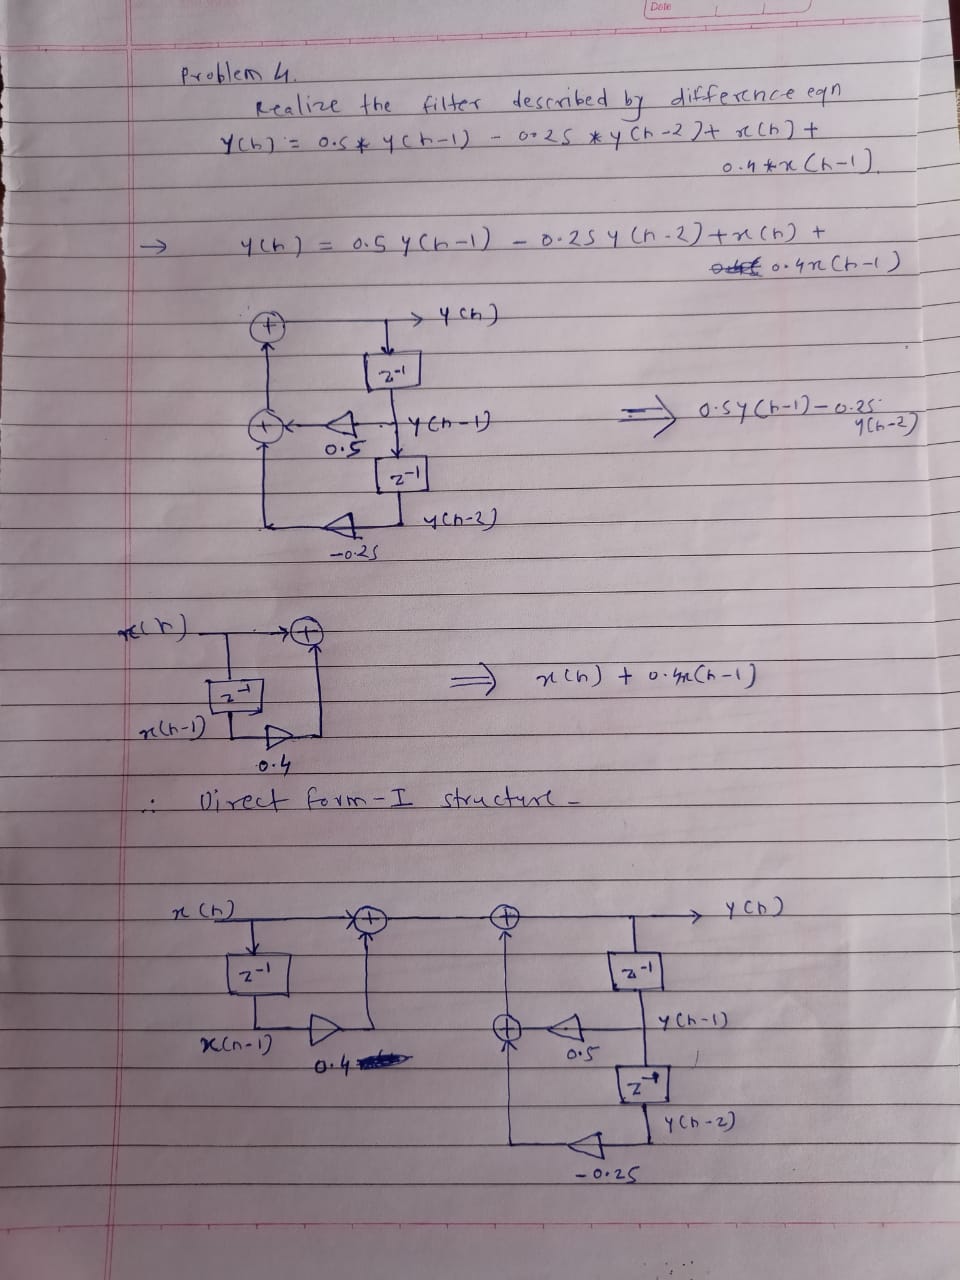 Date
Problem 4.
Realize the filter described by difference eqn
y(n) = 0.5 * y(n-1) - 0.25 * y(n-2) + x(n) +
0.4 * x(n-1).
→ y(n) = 0.5 y(n-1) - 0.25 y(n-2) + x(n) +
0.4x(n-1)
+ → y(n)
z⁻¹
+ 0.5 y(n-1) ⇒ 0.5y(n-1) - 0.25
y(n-2)
z⁻¹
y(n-2)
-0.25
x(n) → +
z⁻¹ ⇒ x(n) + 0.4x(n-1)
x(n-1)
0.4
∴ Direct form-I structure -
x(n) + + → y(n)
z⁻¹ z⁻¹
x(n-1) + y(n-1)
0.4 0.5
z⁻¹
y(n-2)
-0.25